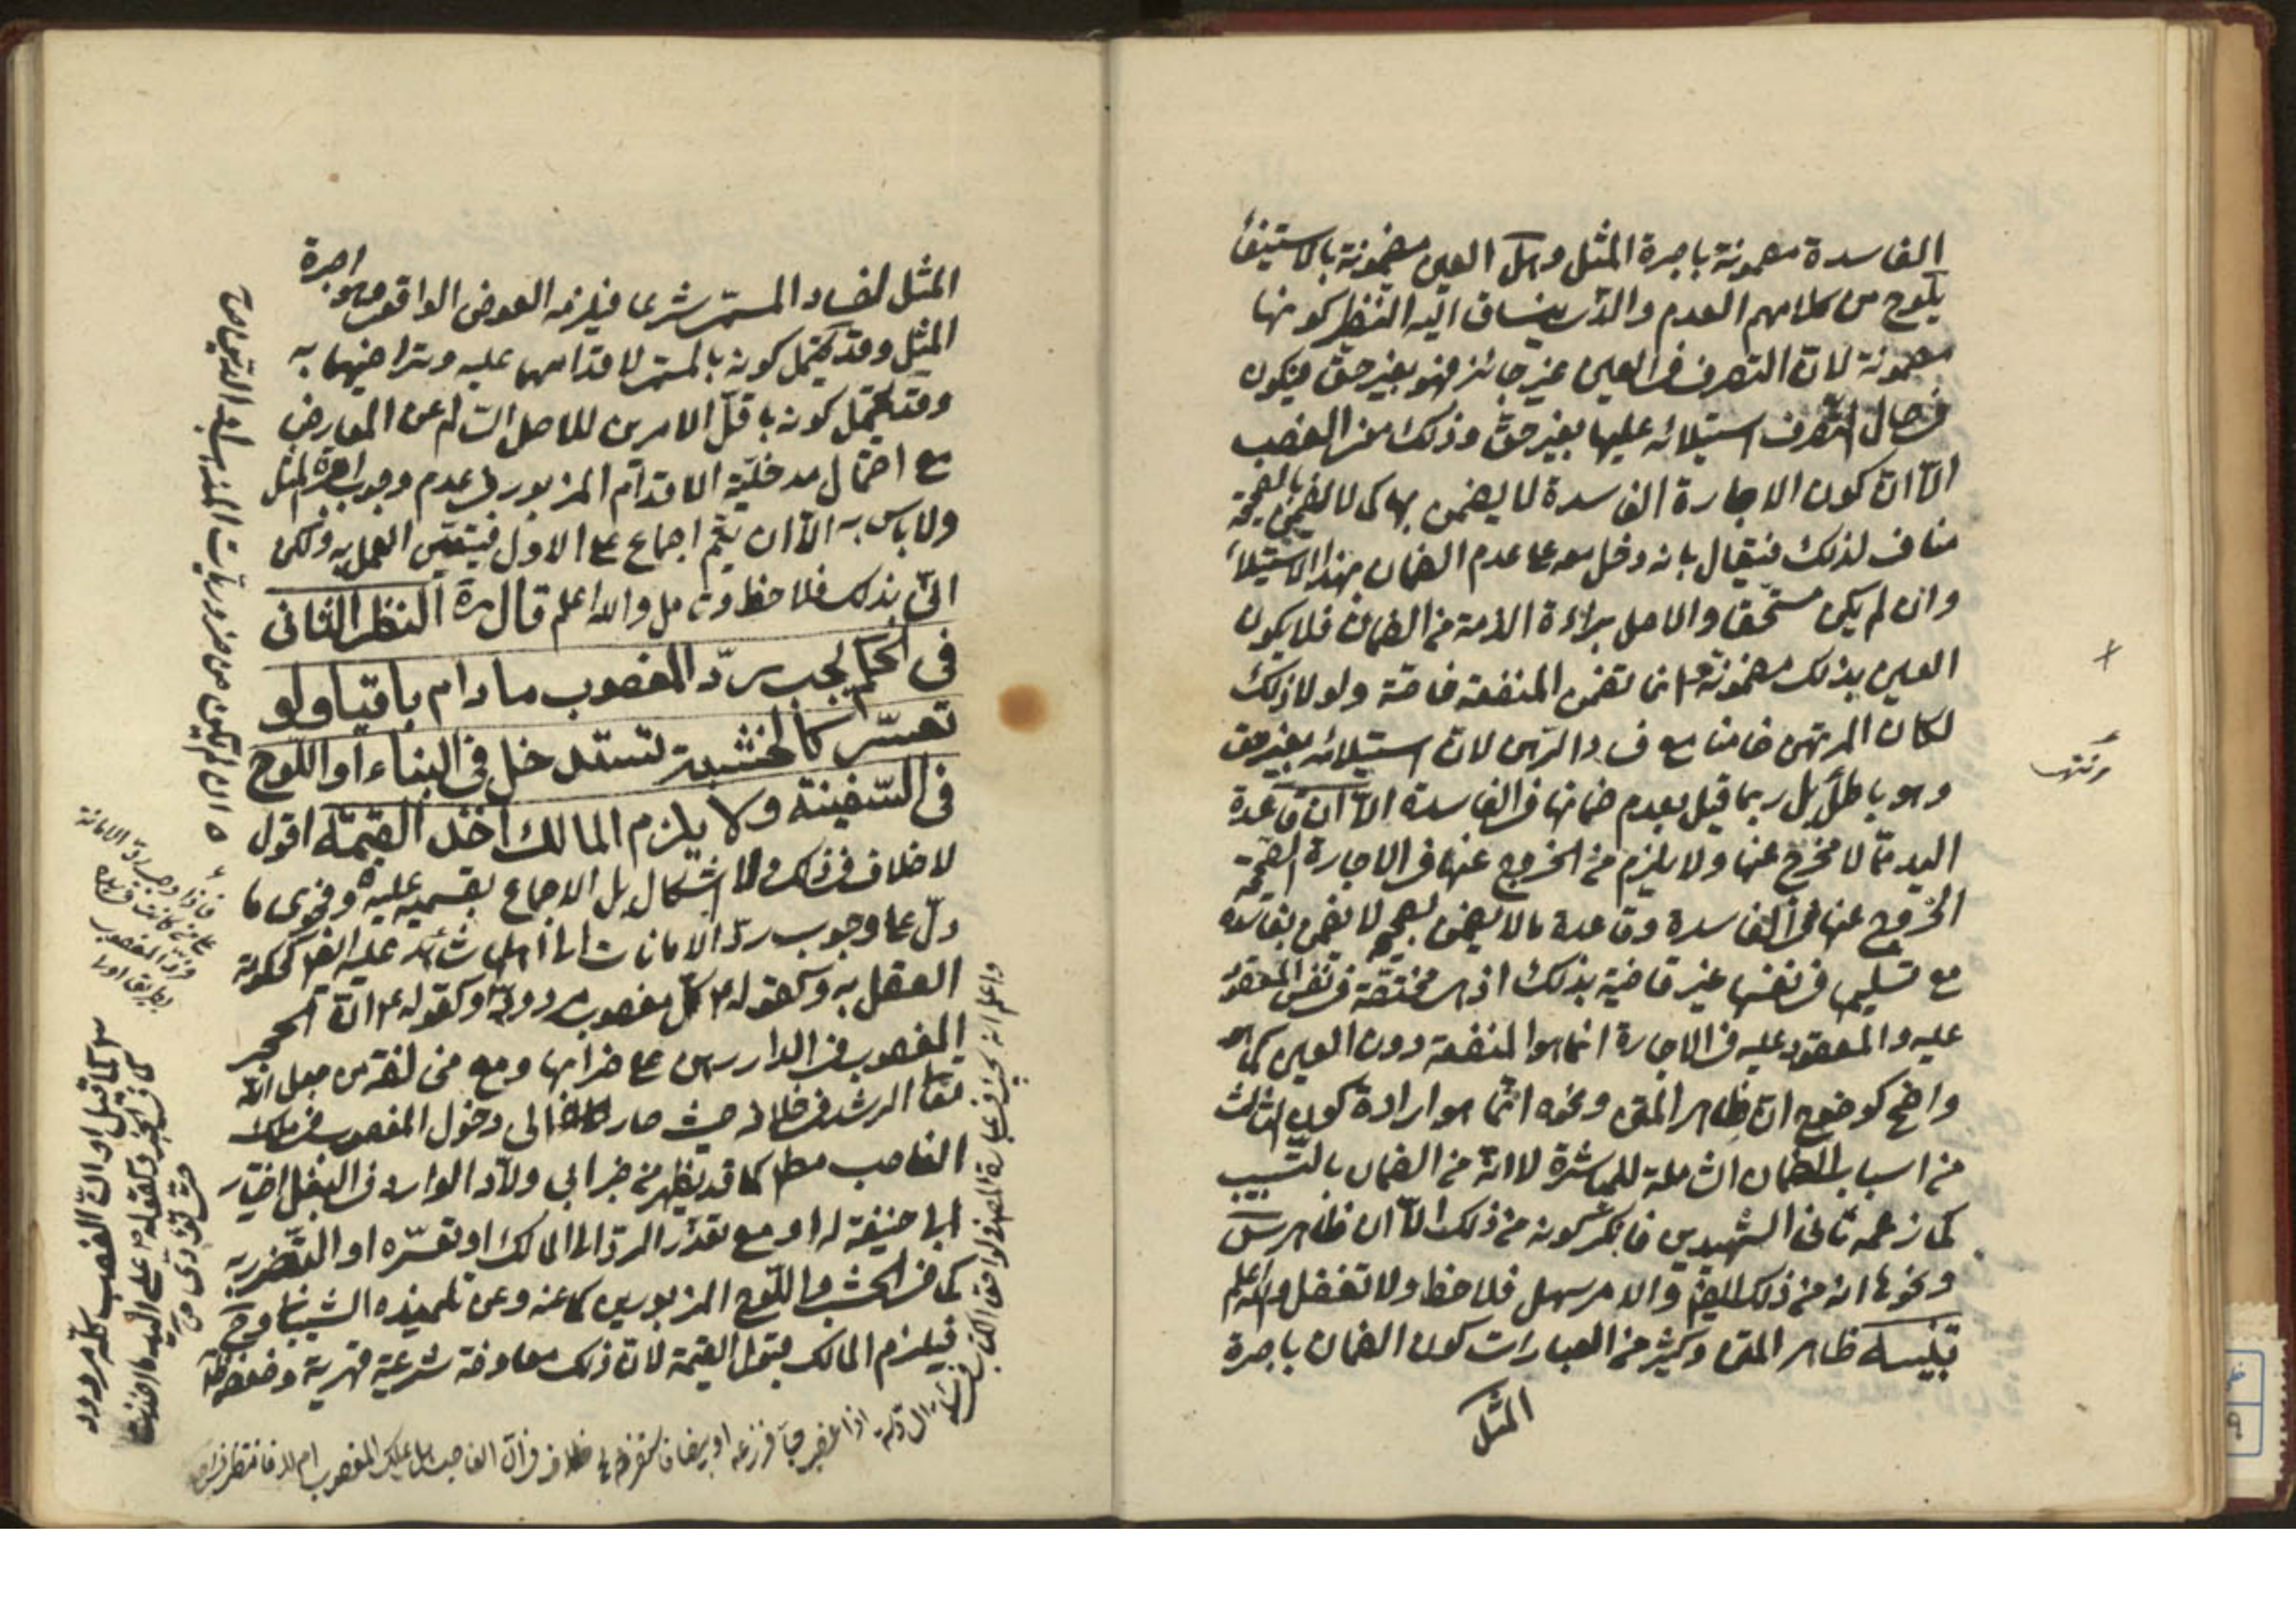 الفاسدة مضمونة باجرة المثل وهل العين مضمونة بالاستيفاء
يلوح من كلامهم العدم والذى ينساق اليه النظر كونها
مضمونة لان التصرف فى العين غير جائز فهو بغير حق فيكون
فى حال التصرف استيلائه عليها بغير حق وذلك معنى الغصب
الا ان كون الاجارة الفاسدة لا يضمن بها كما لا يضمن بالصحيحة
مناف لذلك فيقال بانه دخل معه على عدم الضمان بهذا الاستيلاء
وان لم يكن مستحقا والاصل براءة الذمة من الضمان فلا يكون
العين بذلك مضمونة انما تضمن المنفعة خاصة ولولا ذلك
لكان المرتهن ضامنا مع فساد الرهن لان استيلائه بغير حق
وهو باطل بل ربما قيل بعدم ضمانها فى الفاسدة الا ان قاعدة
اليد مما لا مخرج عنها ولا يلزم من الخروج عنها فى الاجارة الصحيحة
الخروج عنها فى الفاسدة وقاعدة ما لا يضمن بصحيحه لا يضمن بفاسده
مع تسليمها فى نفسها غير قاضية بذلك اذ هى مختصة فى نفس المعقود
عليه والمعقود عليه فى الاجارة انما هو المنفعة دون العين كما هو
واضح كوضوح ان ظاهر المتن ونحوه انما هو ارادة كون الثالث
من اسباب الضمان الشاملة للمباشرة لا انه من الضمان بالتسبيب
كما زعمه ثانى الشهيدين فانكر كونه من ذلك الا ان ظاهر
ونحوها انه من ذلك ايضا والامر سهل فلاحظ ولا تغفل والله اعلم
تنبيه ظاهر المتن وكثير من العبارات كون الضمان باجرة
المثل
المثل لفساد المسمى شرعا فيلزمه العوض الواقعى وهو اجرة
المثل وقد يحتمل كونه بالمسمى لاقدامهما عليه وتراضيهما به
وقد يحتمل كونه باقل الامرين للاصل السالم عن المعارض
مع احتمال مدخلية الاقدام المزبور فى عدم وجوب اجرة المثل
ولا باس به الا ان يتم اجماع على الاول فيتعين العمل به ولكن
انى بذلك فلاحظ وتامل والله اعلم قال النظر الثانى
فى الحكم يجب رد المغصوب ما دام باقيا ولو
تعسر كالخشبة تستدخل فى البناء او اللوح
فى السفينة ولا يلزم المالك اخذ القيمة اقول
لا خلاف فى ذلك ولا اشكال بل الاجماع بقسميه عليه وفحوى ما
دل على وجوب رد الامانات الى اهلها شاهد عليه ايضا كحكومة
العقل به وكقوله ع كل مغصوب مردود وكقوله ع ان الحجر
المغصوب فى الدار رهن على خرابها ومع من لغته من جعل الله
تعالى الرشد فى خلافه حيث صار الى دخول المغصوب فى ملك
الغاصب مطلقا كما قد يظهر من خبر ابى ولاد الوارد فى البغل
ابا حنيفة له او مع تعذر الرد الى المالك او تعسره او التضرر به
كما فى الخشب واللوح المزبورين كما عنه وعن تلميذه الشيبانى
فيلزم المالك القيمة لان ذلك معاوضة شرعية قهرية
كما قيل او ان الغصب كله مردود
كما فى الخبر وكقوله ع على اليد ما اخذت
حتى تؤدى